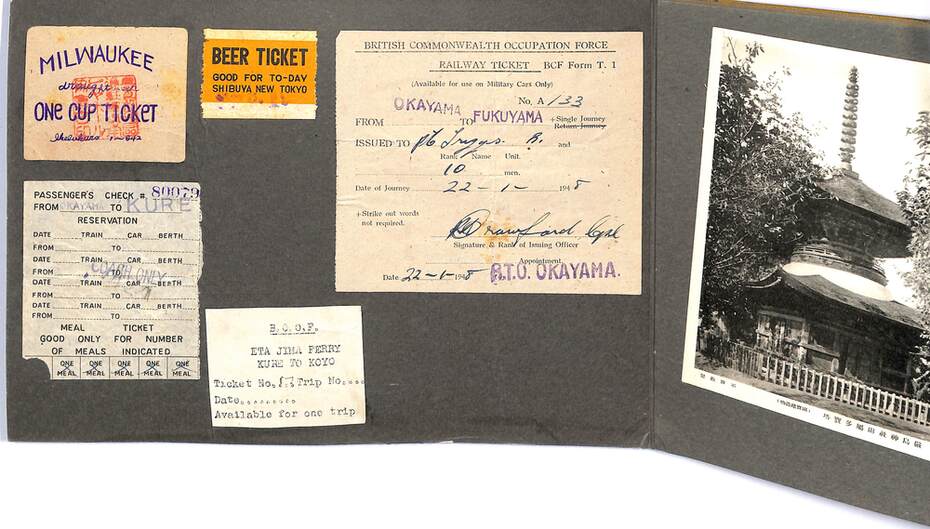 MILWAUKEE
draught beer
ONE CUP TICKET
BEER TICKET
GOOD FOR TO-DAY
SHIBUYA NEW TOKYO
BRITISH COMMONWEALTH OCCUPATION FORCE
RAILWAY TICKET BCF Form T. 1
(Available for use on Military Cars Only)
No. A/133
FROM OKAYAMA TO FUKUYAMA +Single Journey
Return Journey
ISSUED TO Pte Triggs. R. and
Rank Name Unit.
10 men.
Date of Journey 22-1- 1948
+Strike out words
not required.
Crawford Cpl
Signature & Rank of Issuing Officer
Appointment
Date 22-1-1948 R.T.O. OKAYAMA.
PASSENGER'S CHECK # 80079
FROM OKAYAMA TO KURE
RESERVATION
DATE TRAIN CAR BERTH
FROM TO
DATE TRAIN CAR BERTH
FROM TO
COACH ONLY
DATE TRAIN CAR BERTH
FROM TO
DATE TRAIN CAR BERTH
FROM TO
MEAL TICKET
GOOD ONLY FOR NUMBER
OF MEALS INDICATED
ONE MEAL ONE MEAL ONE MEAL ONE MEAL ONE MEAL
B.C.O.F.
ETA JIMA FERRY
KURE TO KOYO
Ticket No. 17 Trip No....
Date.........
Available for one trip
嚴島神社附屬多寳塔